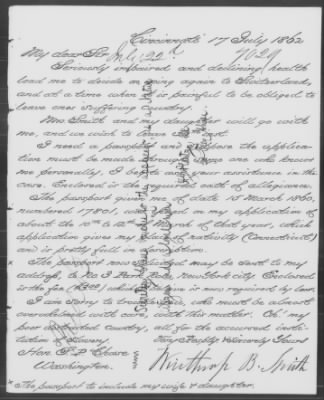 Cincinnati 17 July 1862
My dear Sir,
July 22d
7029
Seriously impaired and declining health
lead me to decide on going again to Switzerland,
and at a time when it is painful to be obliged to
leave our suffering country.
Mrs. Smith and my daughter will go with
me, and we wish to leave
I need a passport and suppose the applica-
tion must be made through some one who knows
me personally, I beg to ask your assistance in this
case. Enclosed is the required oath of allegiance.
The passport given me of date 15 March 1860,
numbered 17801, was based on my application of
about the 10th & 12th March of that year, which
application gives my place of nativity (Connecticut)
and is pretty full in information.
x The passport now solicited may be sent to my
address, to No 3 Park Place, New York city. Enclosed
is the fee, which I believe is now required by law.
I am sorry to trouble you, who must be almost
overwhelmed with care, with this matter. Oh! my
poor country, all for the accursed insti-
tution of slavery.
Very Respy & Sincerely Yours
Hon. S. P. Chase
Winthrop B. Smith
Washington.
x The passport to include my wife & daughter.